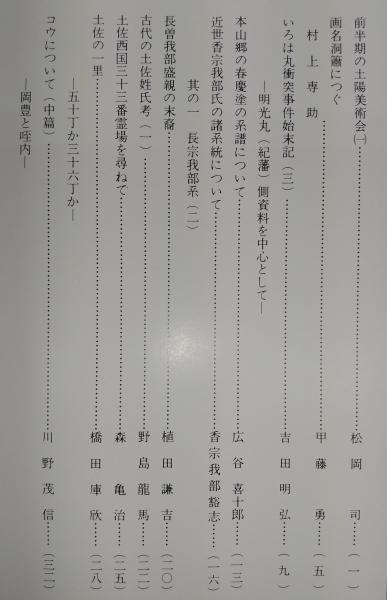 前半期の土陽美術会㈠……松岡　司……（一）
画名洞簫につぐ
村上専助……甲藤　勇……（五）
いろは丸衝突事件始末記（三）……吉田明弘……（九）
―明光丸（紀藩）側資料を中心として―
本山郷の春慶塗の系譜について……広谷喜十郎……（一三）
近世香宗我部氏の諸系統について……香宗我部豁志……（一六）
其の一　長宗我部系（二）
長曽我部盛親の末裔……植田謙吉……（二〇）
古代の土佐姓氏考（一）……野島龍馬……（二二）
土佐西国三十三番霊場を尋ねて……森　亀治……（二五）
土佐の一里……橋田庫欣……（二八）
―五十丁か三十六丁か―
コウについて（中篇）……川野茂信……（三二）
―岡豊と咥内―